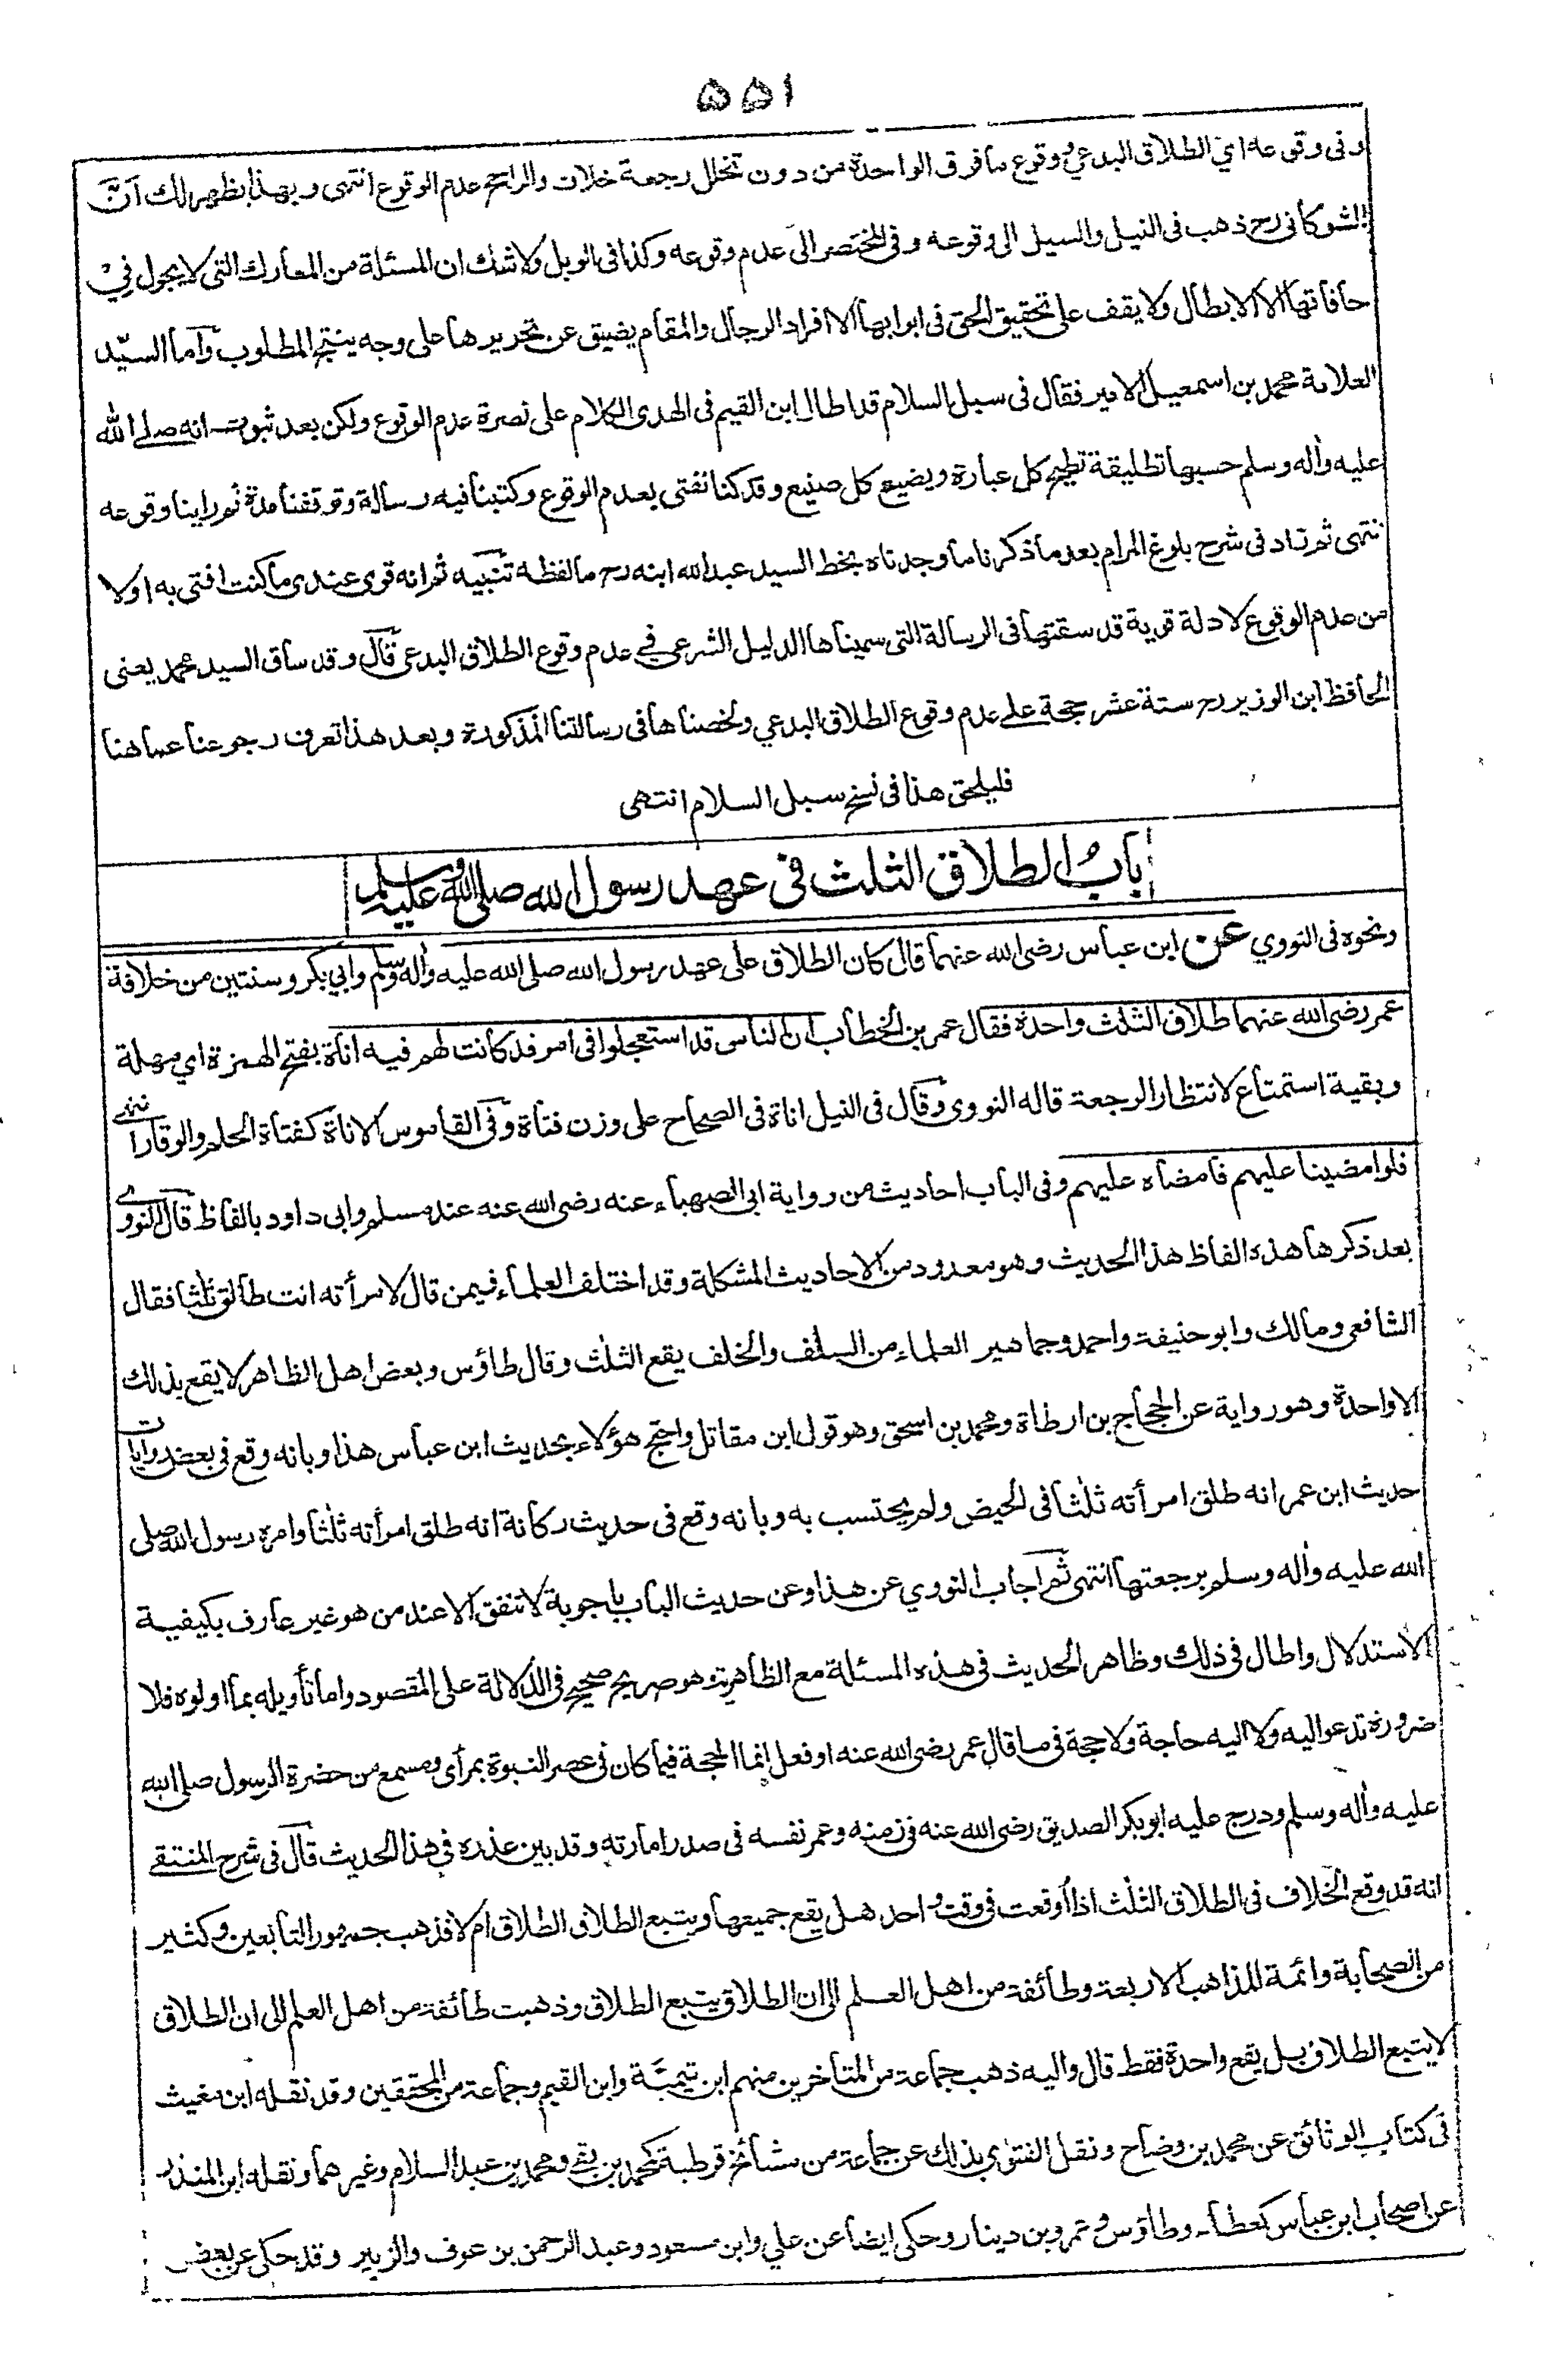 ۵۵۱
وفى وقوعه اي الطلاق البدعي ووقوع ما فوق الواحدة من دون تخلل رجعة خلاف والراجح عدم الوقوع انتهى وبهذا يظهر لك اَنَّ
الشوكانى رح ذهب فى النيل والسيل الى وقوعه وفى المختصر الى عدم وقوعه وكذا فى الوبل ولا شك ان المسئلة من المعارك التى لا يجول فِيْ
حافاتها الا الابطال ولا يقف على تحقيق الحق فى ابوابها الا افراد الرجال والمقام يضيق عن تحريرها على وجه ينتج المطلوب وآما السيّد
العلامة محمد بن اسمعيل الامير فقال فى سبل السلام قد اطال ابن القيم فى الهدى الكلام على نصرة عدم الوقوع ولكن بعد ثبوت انه صلى الله
عليه واٰله وسلم حسبها تطليقة تطيح كل عبارة ويضيع كل صنيع وقد كنا نفتى بعدم الوقوع وكتبنا فيه رسالة وتوقفنا مدة ثم راينا وقوعه
انتهى ثم زاد فى شرح بلوغ المرام بعد ما ذكرنا ما وجدناه بخط السيد عبد الله ابنه رح ما لفظه تنبيه ثم انه قوى عندى ما كنت افتى به اولا
من عدم الوقوع لادلة قوية قد سقتها فى الرسالة التى سميناها الدليل الشرعي في عدم وقوع الطلاق البدعى قال وقد ساق السيد محمد يعنى
الحافظ ابن الوزير رح ستة عشر حجة على عدم وقوع الطلاق البدعي ولخصناها فى رسالتنا المذكورة وبعد هذا تعرف رجوعنا عما هنا
فليلحق هذا فى نسخ سبل السلام انتهى
باب الطلاق الثلث فى عهد رسول الله صلى الله عليه وسلم
ونحوه فى النووي عن ابن عباس رضى الله عنهما قال كان الطلاق على عهد رسول الله صلى الله عليه واٰله وسلم وابي بكر وسنتين من خلافة
عمر رضى الله عنهما طلاق الثلث واحدة فقال عمر بن الخطاب ان الناس قد استعجلوا فى امر قد كانت لهم فيه اناة بفتح الهمزة اي مهلة
وبقية استمتاع لانتظار الرجعة قاله النووى وقال فى النيل اناة فى الصحاح على وزن فتاة وفى القاموس الاناة كفتاة الحلم والوقار انتهى
فلو امضينا عليهم فامضاه عليهم وفى الباب احاديث من رواية ابى الصهباء عنه رضى الله عنه عند مسلم وابى داود بالفاظ قال النووى
بعد ذكرها هذه الفاظ هذا الحديث وهو معدود من الاحاديث المشكلة وقد اختلف العلماء فيمن قال لامرأته انت طالق ثلثا فقال
الشافعى ومالك وابو حنيفة واحمد وجماهير العلماء من السلف والخلف يقع الثلٰث وقال طاؤس وبعض اهل الظاهر لا يقع بذلك
الا واحدة وهو رواية عن الحجاج بن ارطاة ومحمد بن اسحق وهو قول ابن مقاتل واحتج هؤلاء بحديث ابن عباس هذا وبانه وقع فى بعض روايات
حديث ابن عمر انه طلق امرأته ثلٰثا فى الحيض ولم يحتسب به وبانه وقع فى حديث ركانة انه طلق امرأته ثلٰثا وامره رسول الله صلى
الله عليه واٰله وسلم برجعتها انتهى ثم اجاب النووي عن هذا وعن حديث الباب باجوبة لا تنفق الا عند من هو غير عارف بكيفية
الاستدلال واطال فى ذلك وظاهر الحديث فى هذه المسئلة مع الظاهرية وهو صريح صحيح فى الدلالة على المقصود واما تأويله بما اولوه فلا
ضرورة تدعو اليه ولا اليه حاجة ولا حجة فى ما قال عمر رضى الله عنه او فعل انما الحجة فيما كان فى عصر النبوة بمرأى ومسمع من حضرة الرسول صلى الله
عليه واٰله وسلم ودرج عليه ابو بكر الصديق رضى الله عنه فى زمنه وعمر نفسه فى صدر امارته وقد بين عذره فى هذا الحديث قال فى شرح المنتقى
انه قد وقع الخلاف فى الطلاق الثلٰث اذا اُوقعت فى وقت واحد هل يقع جميعها ويتبع الطلاق الطلاق ام لا فذهب جمهور التابعين وكثير
من الصحابة وائمة المذاهب الاربعة وطائفة من اهل العلم الى ان الطلاق يتبع الطلاق وذهبت طائفة من اهل العلم الى ان الطلاق
لا يتبع الطلاق بل يقع واحدة فقط قال واليه ذهب جماعة من المتأخرين منهم ابن تيميَّة وابن القيم وجماعة من المحققين وقد نقله ابن مغيث
فى كتاب الوثائق عن محمد بن وضاح ونقل الفتوٰى بذلك عن جماعة من مشائخ قرطبة كمحمد بن بقي ومحمد بن عبد السلام وغيرهما ونقله ابن المنذر
عن اصحاب ابن عباس كعطاء وطاؤس وعمرو بن دينار وحكى ايضا عن علي وابن مسعود وعبد الرحمن بن عوف والزبير وقد حكى عن بعض